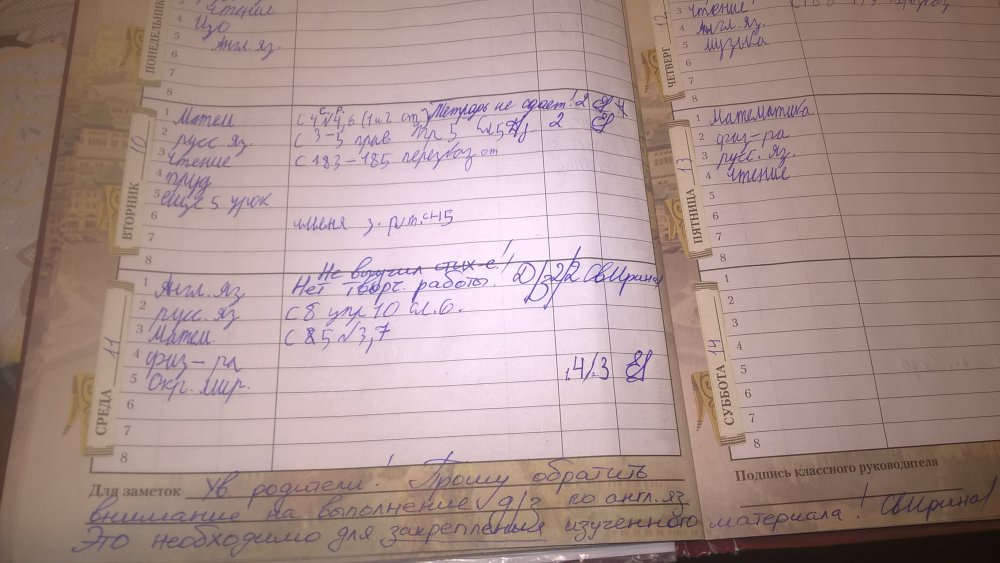 ПОНЕДЕЛЬНИК
3 Чтение
4 Изо
5 Англ. яз.
6
7
8
ВТОРНИК 10
1 Матем С 4 №4,6 (1и2 ст) Тетрадь не сдает! 2
2 русс. яз. С 3-5 прав упр 5 2
3 чтение С 183-185 пересказ от
4 труд
5 еще 5 урок
6
7
8
СРЕДА 11
Не выучил стих-е!
1 Англ. яз Нет творч. работы! Д/з 2/2 Свирина
2 русс. яз С 8 упр 10 сл. о.
3 Матем С 85 №3,7
4 физ-ра
5 Окр. мир. 4/3
6
7
8
Для заметок Ув. родители! Прошу обратить
внимание на выполнение д/з по англ. яз.
Это необходимо для закрепления изученного материала! Свирина
ЧЕТВЕРГ 12
3 чтение
4 Англ. яз
5 музыка
6
7
8
ПЯТНИЦА 13
1 Математика
2 физ-ра
3 русс. яз.
4 чтение
5
6
7
8
СУББОТА 14
1
2
3
4
5
6
7
8
Подпись классного руководителя